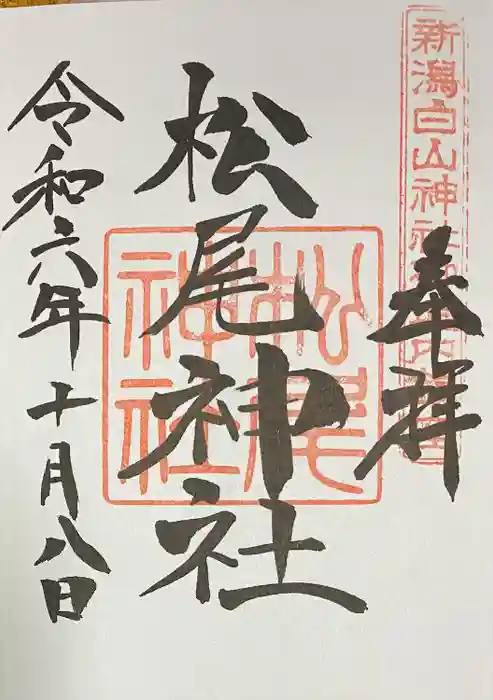 新潟白山神社
奉拝
松尾神社
松尾
神社
令和六年十月八日